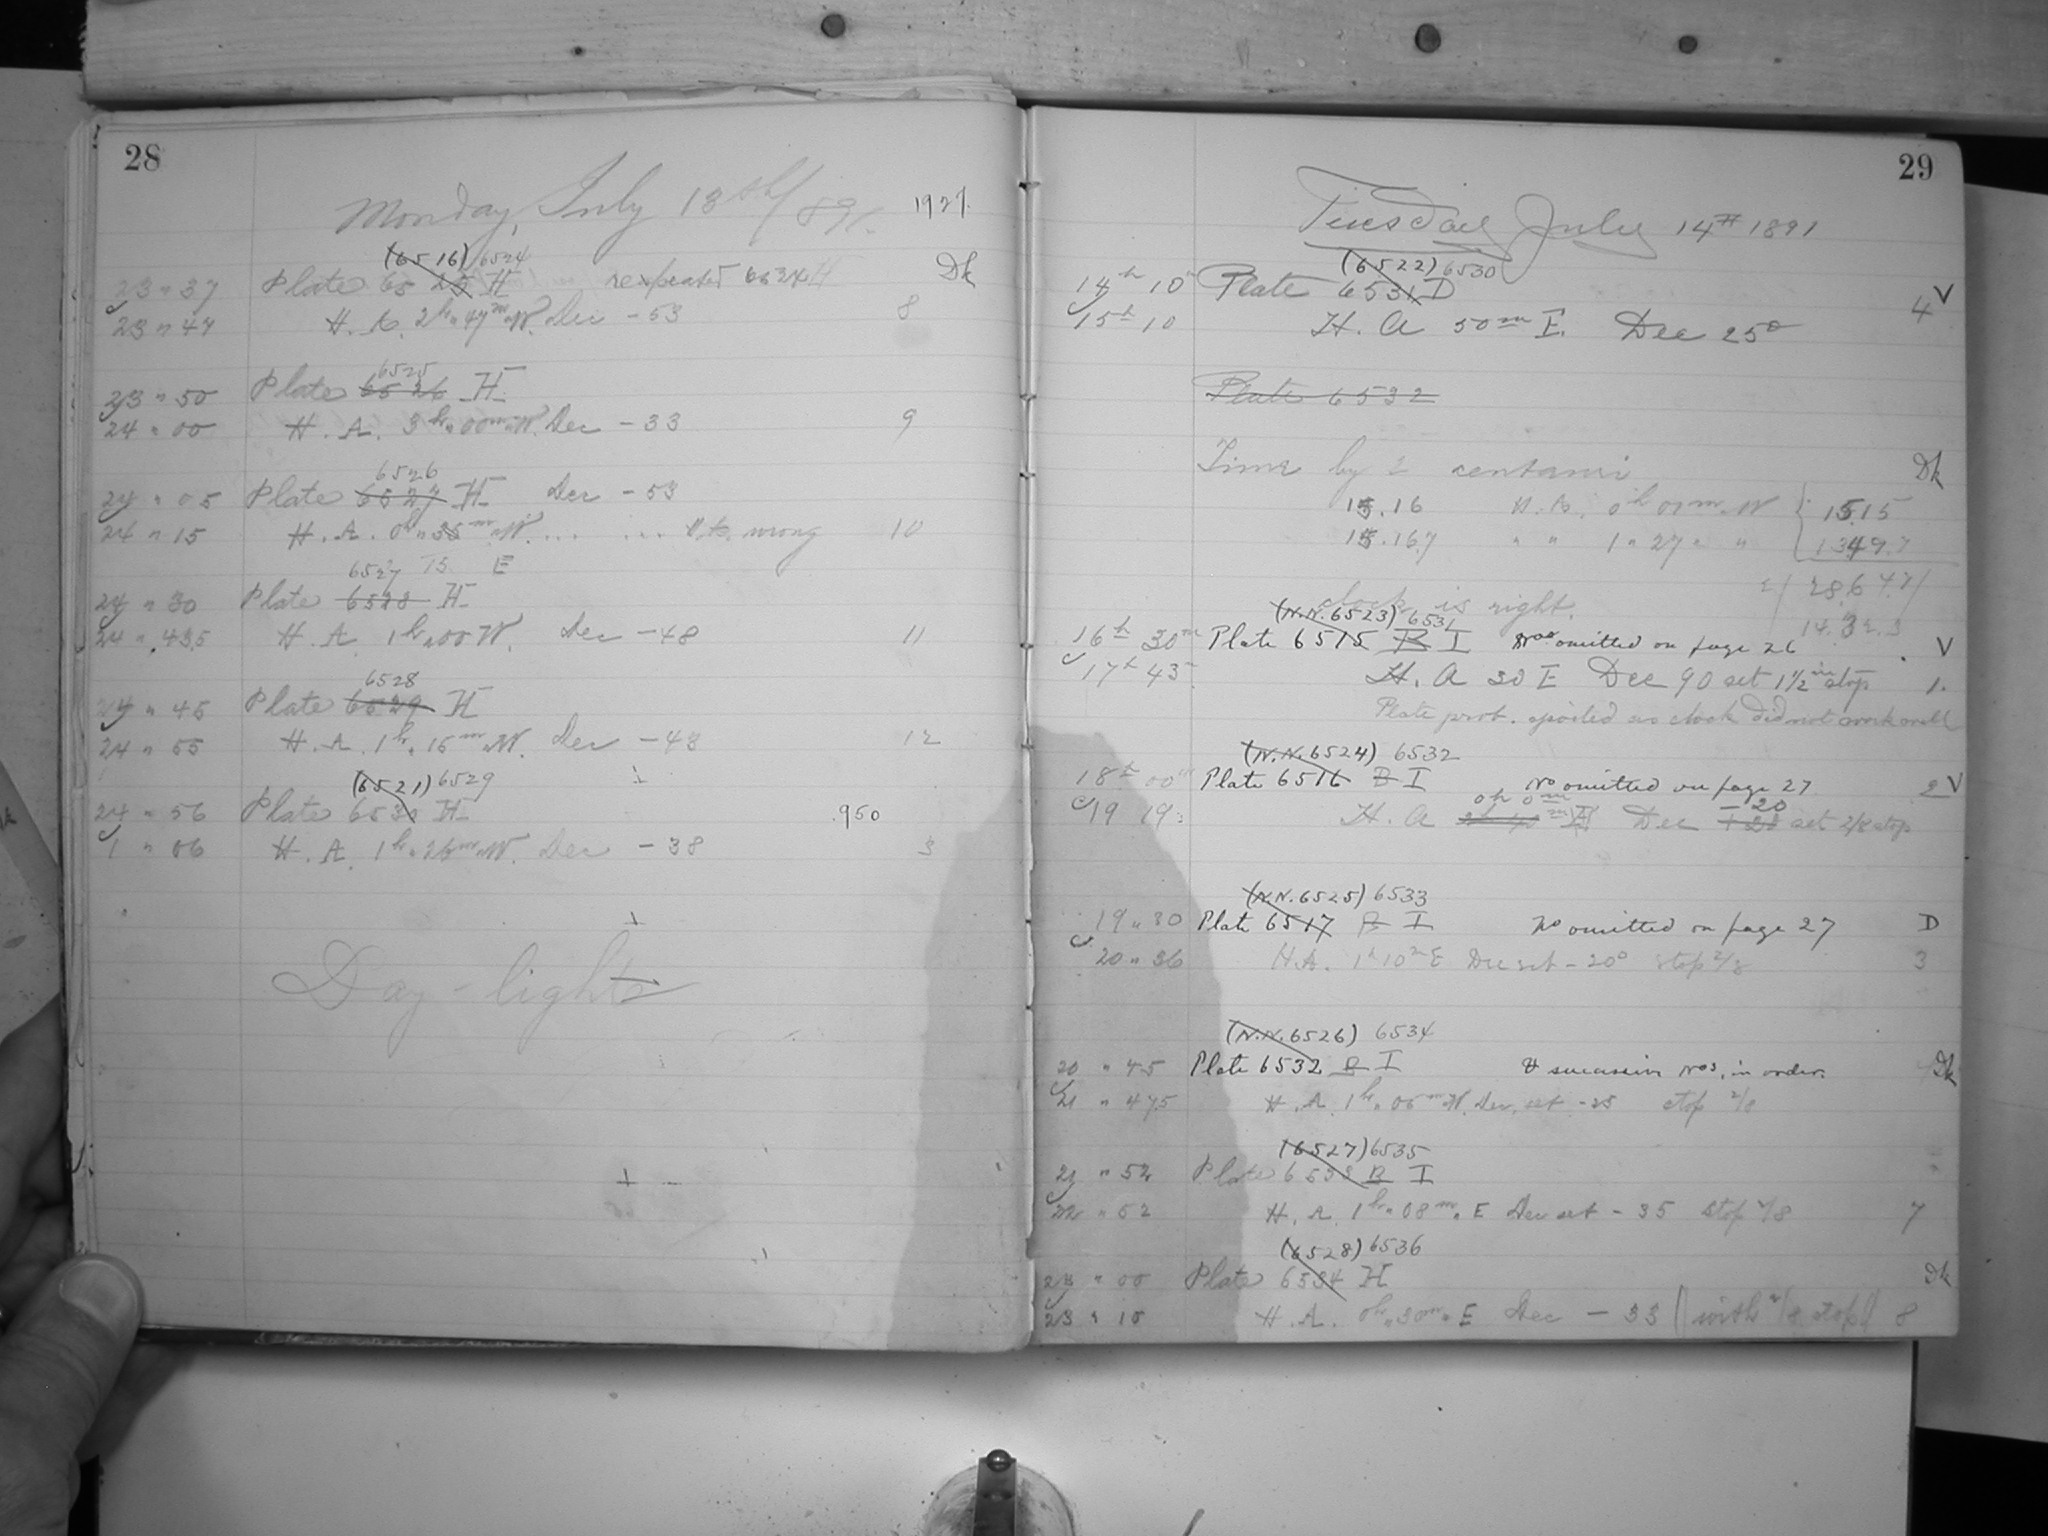 28
Monday, July 13th/891. 1927.
(6516) 6524
23 " 37 Plate 65 25 H repeated 6524 H Dk
23 " 47 H. A. 2hr " 47m W. Dec - 53 8
6525
23 " 50 Plate 6526 H
24 " 00 H. A. 3hr " 00m W. Dec - 33 9
6526
24 " 05 Plate 6527 H Dec - 53
24 " 15 H. A. 0h " 35m W. ... ... wrong 10
6527 15 E
24 " 30 Plate 6528 H
24 " 43.5 H. A. 1hr " 00 W. Dec - 48 11
6528
24 " 45 Plate 6529 H
24 " 55 H. A. 1hr " 15m W. Dec - 43 12
(6521) 6529
24 " 56 Plate 6530 H .950
1 " 06 H. A. 1hr " 26m W. Dec - 38 3
Day-light
29
Tuesday July 14th 1891
(6522) 6530
14h 10m Plate 6531 D 4 V
15h 10 H. A 50m E. Dec 25°
Plate 6532
Time by 2 centauri Dk
15.16 H. A. 0h 01m W 15.15
15.16.7 " " 1 " 27 " " 13.49.7
2/ 28.64.7/
clock is right.
14.32.3
(N.N. 6523) 6531
16h 30m Plate 6515 B I Nos omitted on page 26 V
17h 43 H. A 30 E Dec 90 set 1 1/2 in stop 1.
Plate prob. spoiled as clock did not work well
(N.N. 6524) 6532
18h 00m Plate 6516 B I No omitted on page 27 2 V
0h 0m - 20
19 19 H. A Dec + 20 set 2/8 stop
(N.N. 6525) 6533
19 " 30 Plate 6517 B I No omitted on page 27 D
20 " 36 H.A. 1h 10m E Dec set - 20° stop 2/8 3
(N.N. 6526) 6534
20 " 45 Plate 6532 B I & successive Nos. in order. Dk
21 " 47.5 H. A. 1hr " 05m W. Dec. set - 25 stop 2/8
(6527) 6535
21 " 52 Plate 6533 B I
22 " 52 H. A. 1hr " 08m " E Dec set - 35 stop 2/8 7
(6528) 6536
23 " 00 Plate 6534 H Dk
23 " 10 H. A. 0h " 30m " E Dec - 33 (with 2/8 stop) 8